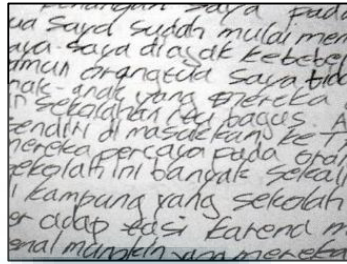 saya pada
ua saya sudah mulai mem
aya. saya diajak kebebe
amun orangtua saya tid
nak-anak yang mereka
sekolahan itu bagus. A
sendiri di masukkang ke T
mereka percaya pada oran
sekolah ini banyak sekali
i kampung yang sekolah
er adap tasi karena m
enal mungkin yang mereka